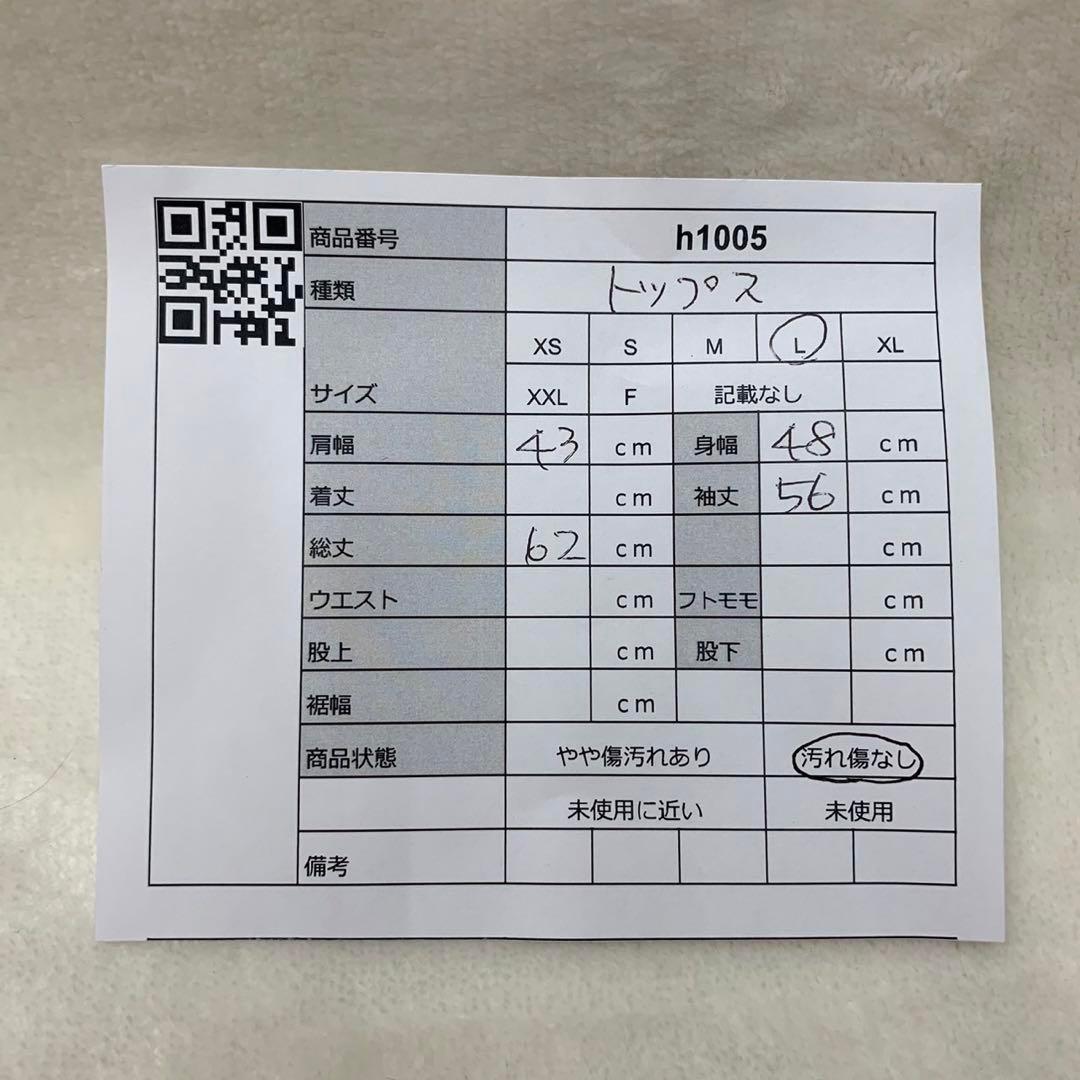 商品番号 h1005
種類 トップス
XS S M L XL
サイズ XXL F 記載なし
肩幅 43 cm 身幅 48 cm
着丈 cm 袖丈 56 cm
総丈 62 cm cm
ウエスト cm フトモモ cm
股上 cm 股下 cm
裾幅 cm
商品状態 やや傷汚れあり 汚れ傷なし
未使用に近い 未使用
備考